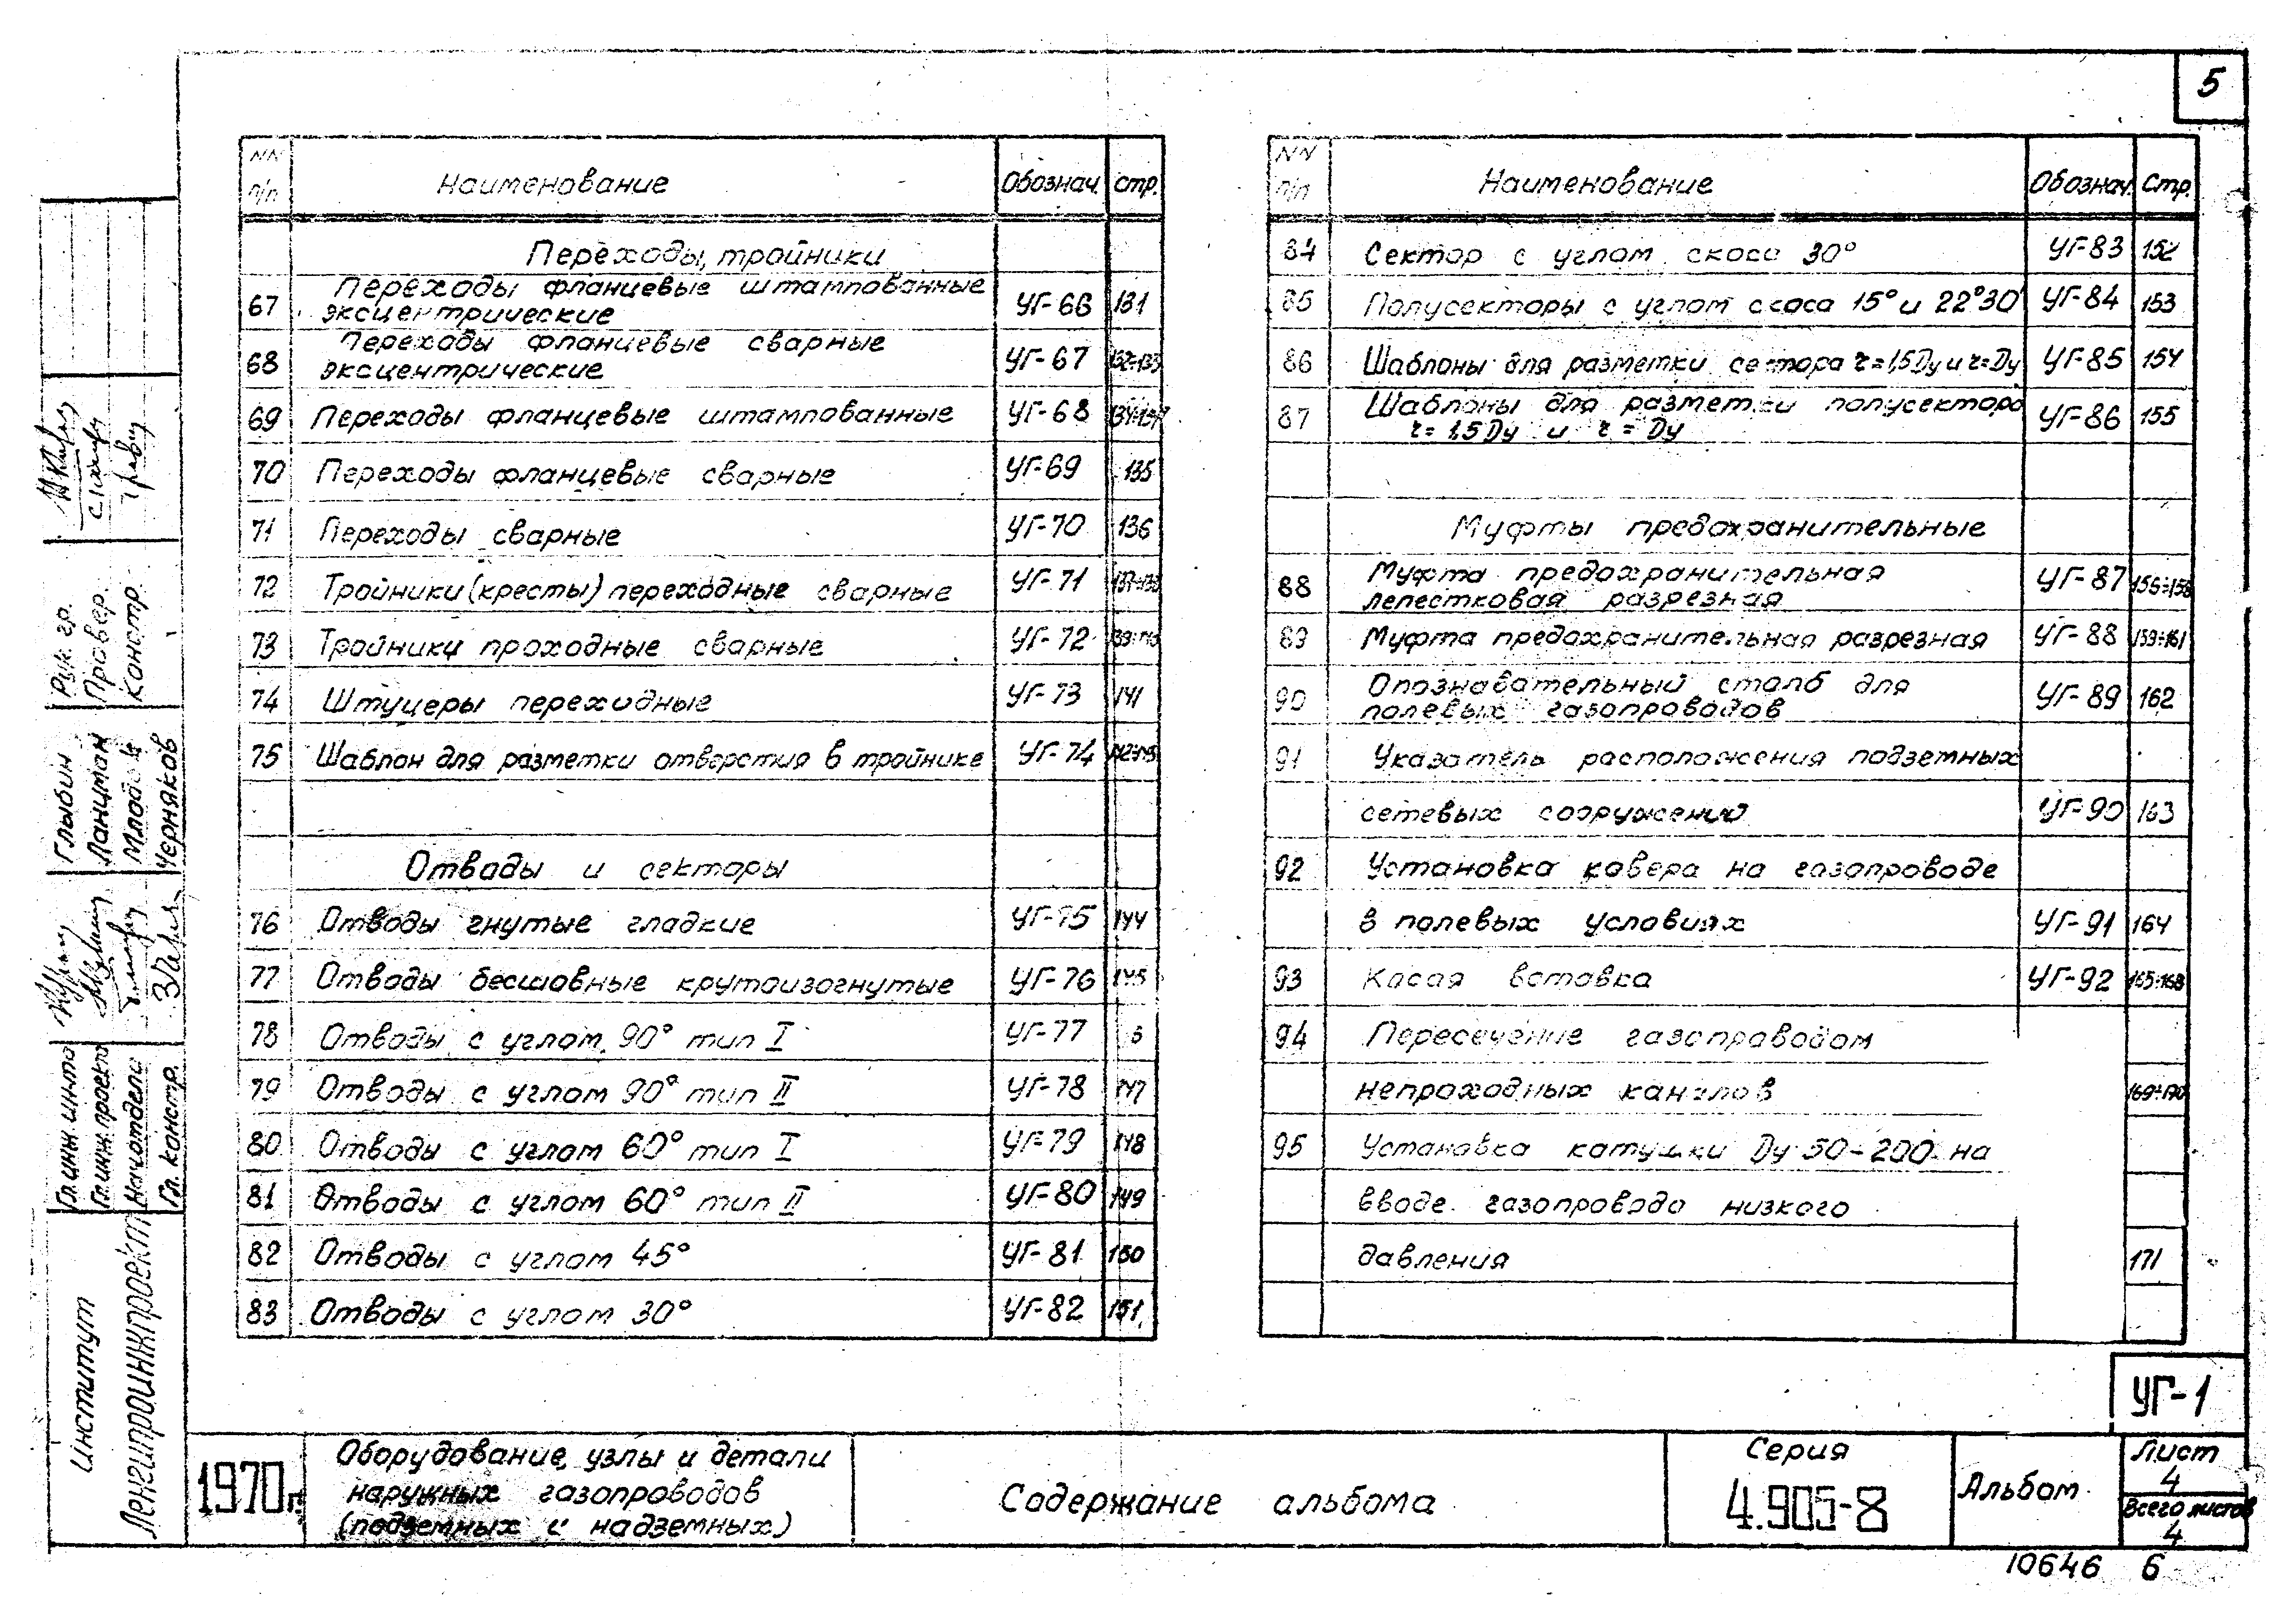 5
NN п/п Наименование Обознач. стр.
Переходы, тройники
67 Переходы фланцевые штампованные
эксцентрические УГ-66 131
68 Переходы фланцевые сварные
эксцентрические УГ-67 132÷133
69 Переходы фланцевые штампованные УГ-68
70 Переходы фланцевые сварные УГ-69 135
71 Переходы сварные УГ-70 136
72 Тройники (кресты) переходные сварные УГ-71
73 Тройники проходные сварные УГ-72
74 Штуцеры переходные УГ-73 141
75 Шаблон для разметки отверстия в тройнике УГ-74
Отводы и секторы
76 Отводы гнутые гладкие УГ-75 144
77 Отводы бесшовные крутоизогнутые УГ-76 145
78 Отводы с углом 90° тип I УГ-77
79 Отводы с углом 90° тип II УГ-78 147
80 Отводы с углом 60° тип I УГ-79 148
81 Отводы с углом 60° тип II УГ-80 149
82 Отводы с углом 45° УГ-81 150
83 Отводы с углом 30° УГ-82 151
NN п/п Наименование Обознач. Стр.
84 Сектор с углом скоса 30° УГ-83 152
85 Полусекторы с углом скоса 15° и 22°30' УГ-84 153
86 Шаблоны для разметки сектора r=1,5Dу и r=Dу УГ-85 154
87 Шаблоны для разметки полусектора
r=1,5Dу и r=Dу УГ-86 155
Муфты предохранительные
88 Муфта предохранительная
лепестковая разрезная УГ-87 156÷158
89 Муфта предохранительная разрезная УГ-88 159÷161
90 Опознавательный столб для
полевых газопроводов УГ-89 162
91 Указатель расположения подземных
сетевых сооружений УГ-90 163
92 Установка ковера на газопроводе
в полевых условиях УГ-91 164
93 Косая вставка УГ-92 165÷168
94 Пересечение газопроводом
непроходных каналов 169÷170
95 Установка катушки Dу 50-200 на
вводе газопровода низкого
давления 171
УГ-1
1970г.
Оборудование, узлы и детали
наружных газопроводов
(подземных и надземных)
Содержание альбома
Серия
4.905-8
Альбом
Лист
4
Всего листов
4
10646 6
Рук. гр.
Провер.
Констр.
Глыбин
Ланцман
Черняков
Гл. инж. ин-та
Гл. инж. проекта
Нач. отдела
Гл. констр.
Институт
Ленгипроинжпроект